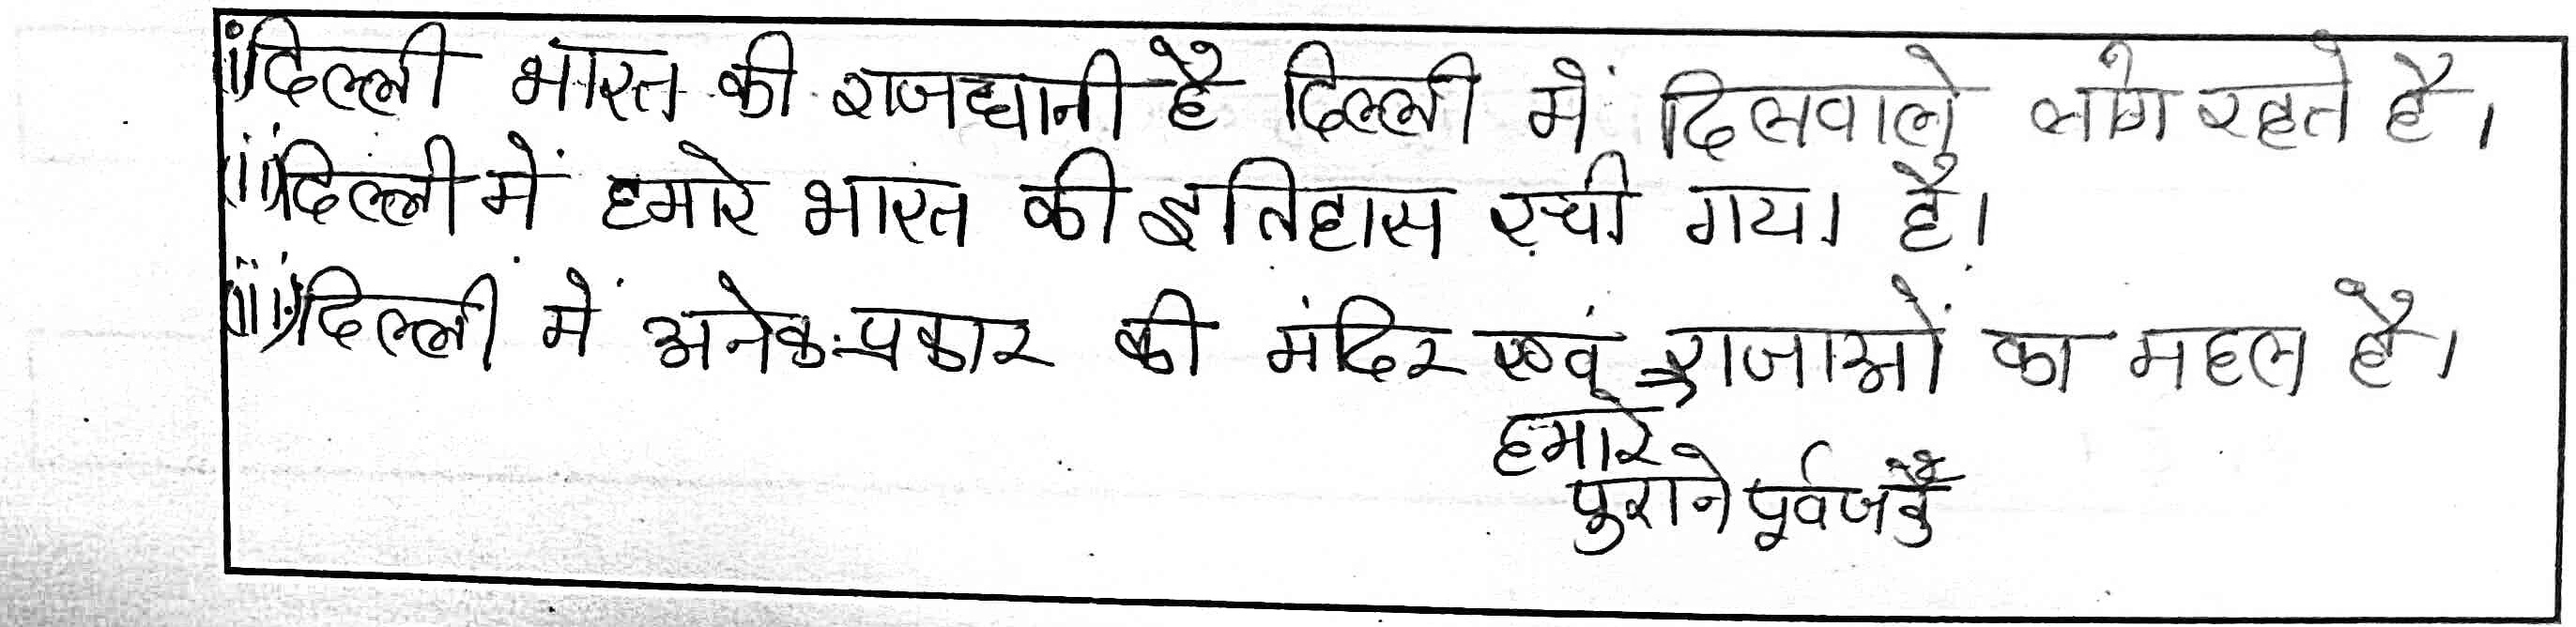 i) दिल्ली भारत की राजधानी है दिल्ली में दिलवाले लोग रहते है।
ii) दिल्ली में हमारे भारत की इतिहास रची गया है।
iii) दिल्ली में अनेक प्रकार की मंदिर एवं राजाओं का महल है।
हमारे
पुराने पूर्वज